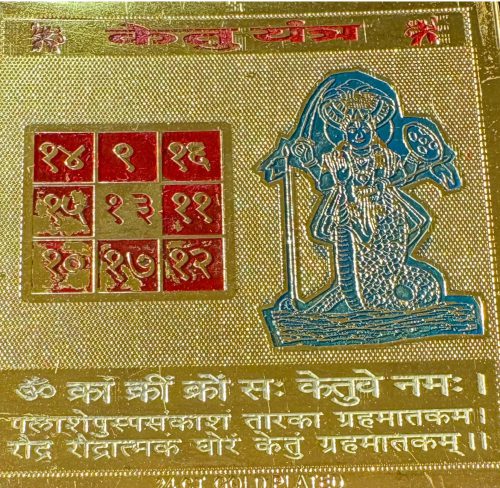 केतु यंत्र
१४ ९ १६
१५ १३ ११
१० १७ १२
ॐ क्रां क्रीं क्रों सः केतुवे नमः।
पलाशेपुस्पसंकाश तारका ग्रहमातकम।
रौद्र रौद्रात्मक घोरं केतुं ग्रहमातकम्।।
24 CT GOLD PLATED